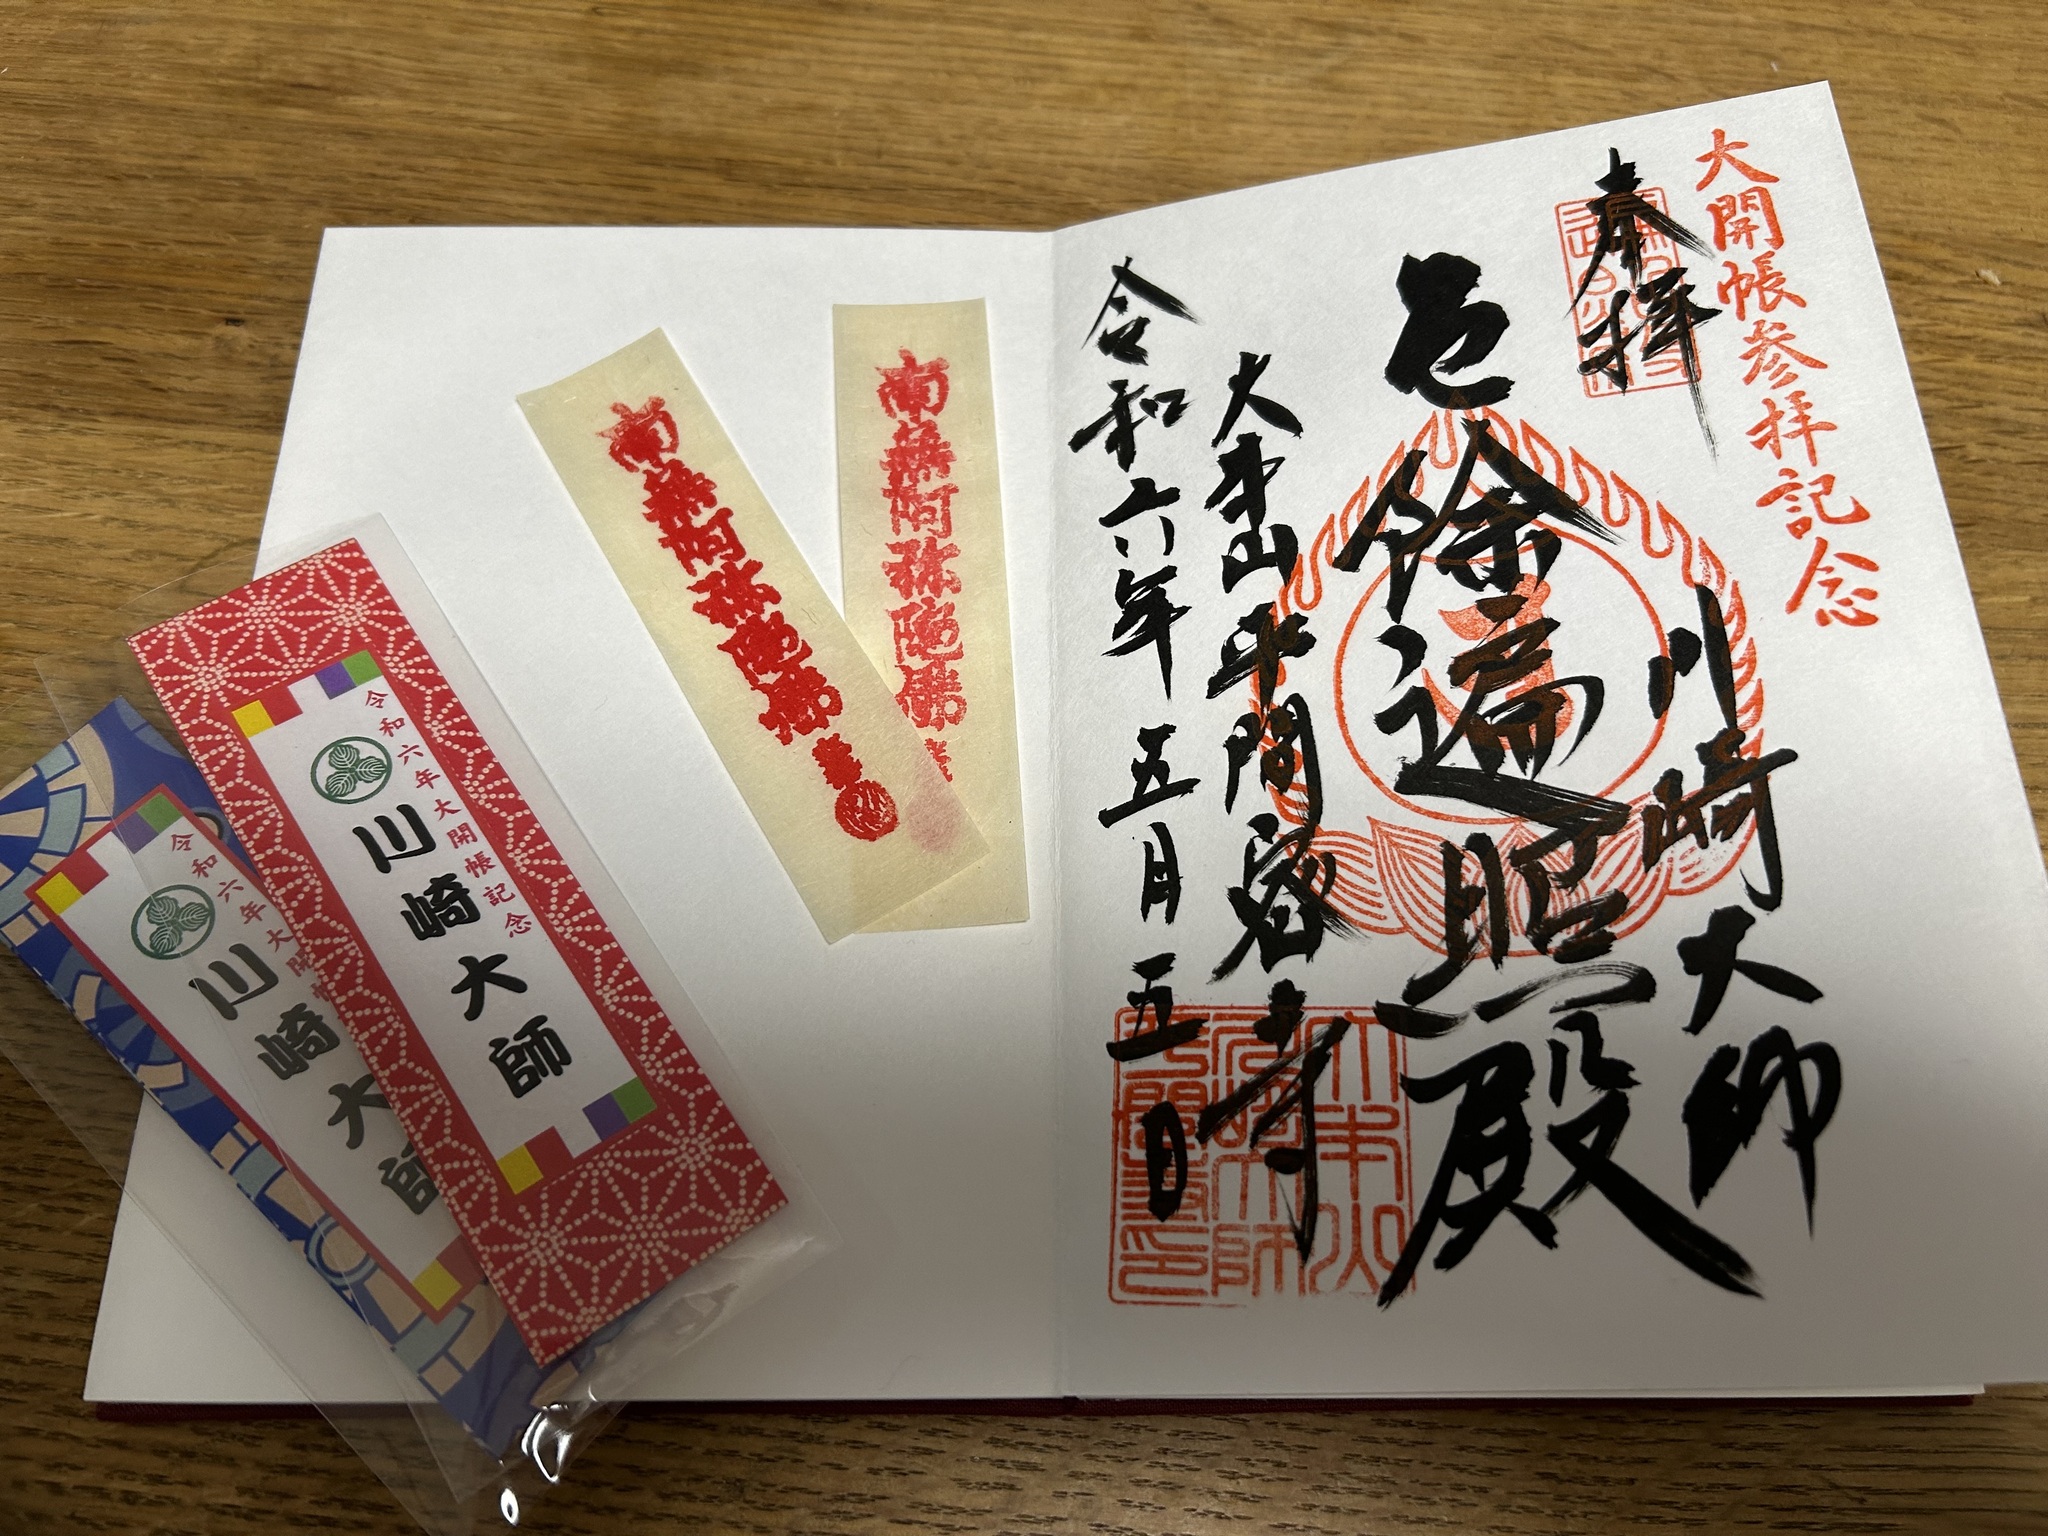 大開帳参拝記念
奉拝
川崎大師
厄除遍照殿
大本山平間寺
令和六年五月五日
南無阿弥陀佛
南無阿弥陀佛
令和六年大開帳記念
川崎大師
令和六年大開帳
川崎大師